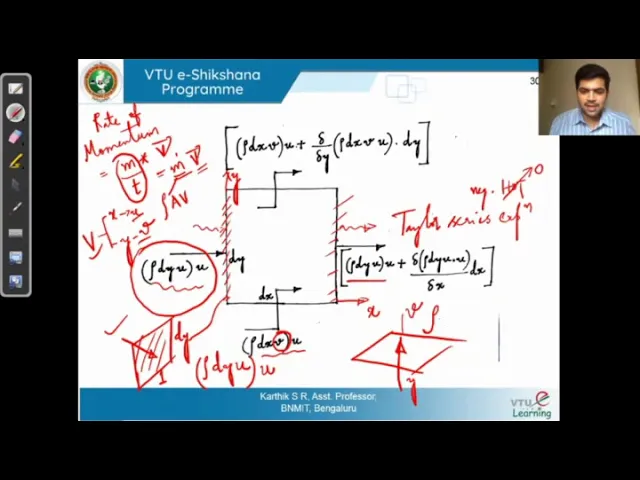 VTU e-Shikshana
Programme
30
Rate of
Momentum
= (m/t) * V = ṁ V
ρAV
V - x → u
y → v
[(ρdxv)u + δ/δy (ρdxvu)·dy]
y
neg. HOT 0
Taylor series expⁿ
(ρdyu)u
dy
[(ρdyu)u + δ(ρdyu·u)/δx dx]
dx
x
(ρdxv)u
v
ρ
dy
1
(ρdyu) u
y
Karthik S R, Asst. Professor,
BNMIT, Bengaluru
VTU e
Learning